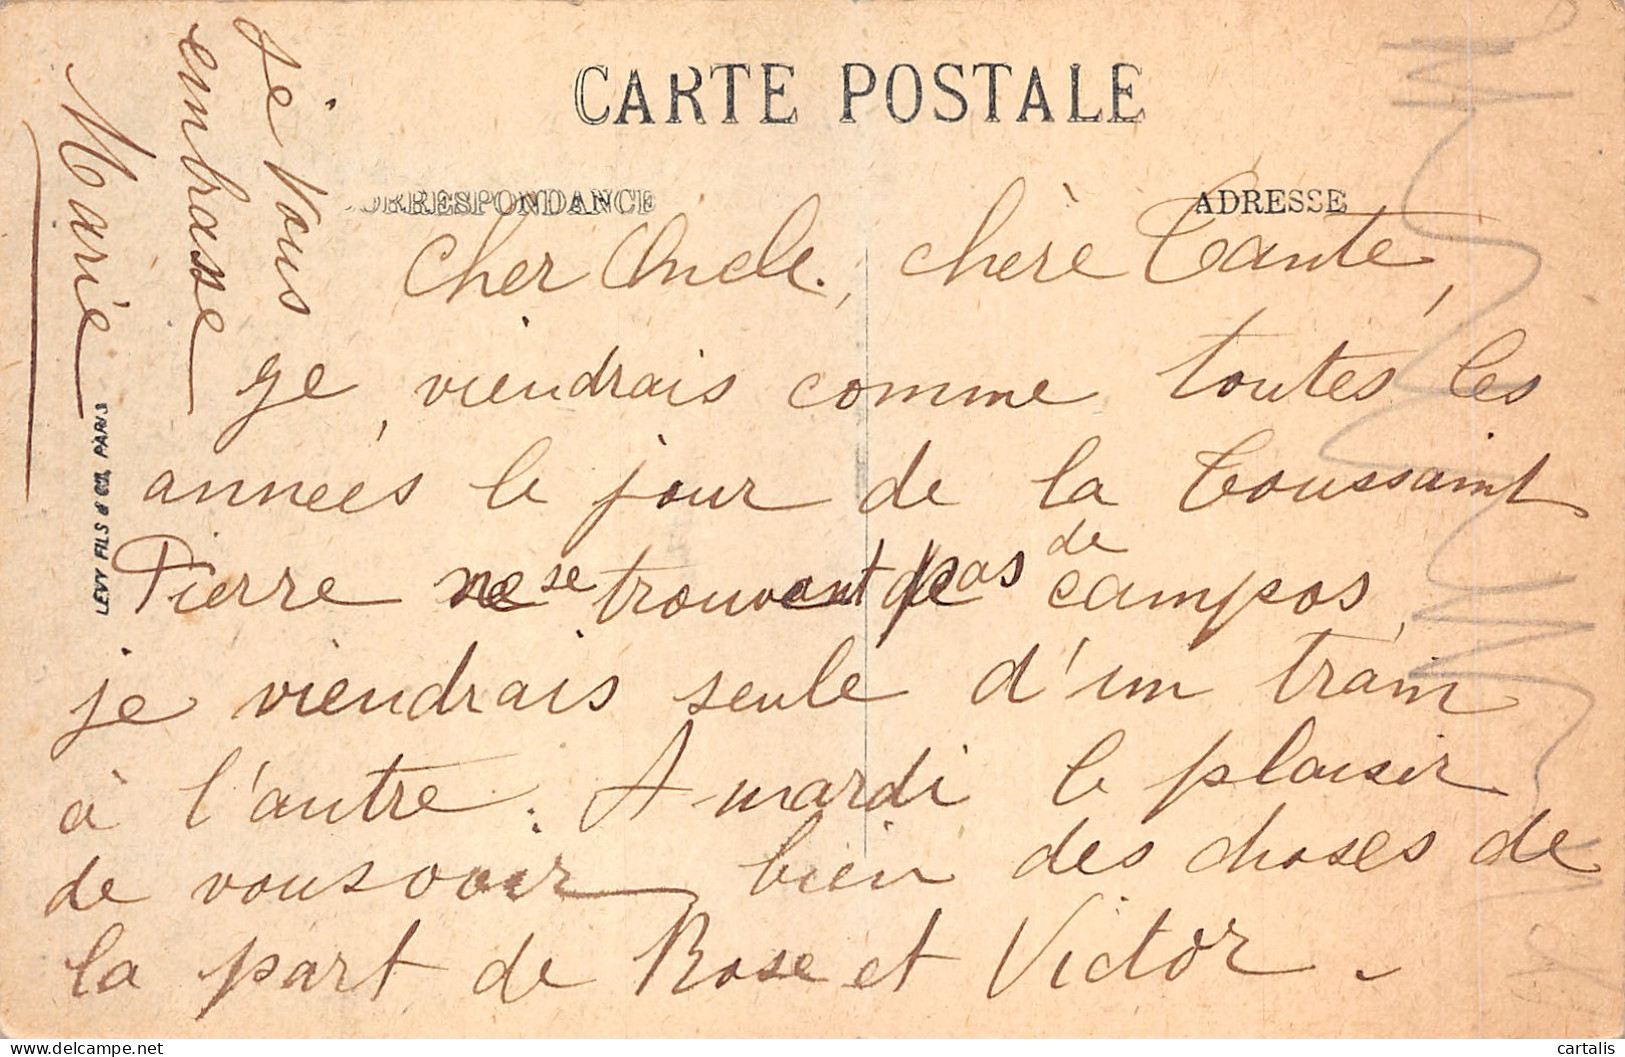 CARTE POSTALE
CORRESPONDANCE
ADRESSE
Cher Oncle, chère Tante,
je viendrais comme toutes les
années le jour de la Toussaint
Pierre ne se trouvant pas de campos,
je viendrais seule d'un train
à l'autre. A mardi le plaisir
de vous voir bien des choses de
la part de Rose et Victor.
je vous
embrasse
Marie
LEVY FILS & Co, PARIS
cartalis
delcampe.net